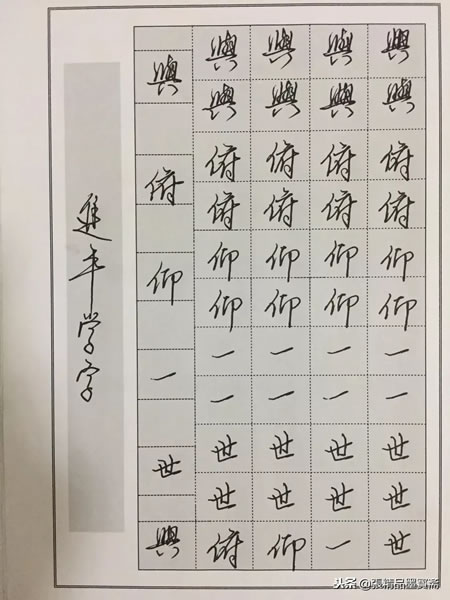 與 與 與 與 與
與 與 與 與
俯 俯 俯 俯 俯
俯 俯 俯 俯
仰 仰 仰 仰 仰
仰 仰 仰 仰
一 一 一 一 一
一 一 一 一
世 世 世 世 世
世 世 世 世
與 俯 仰 一 世
学字
头条 @張精品墨寶斋